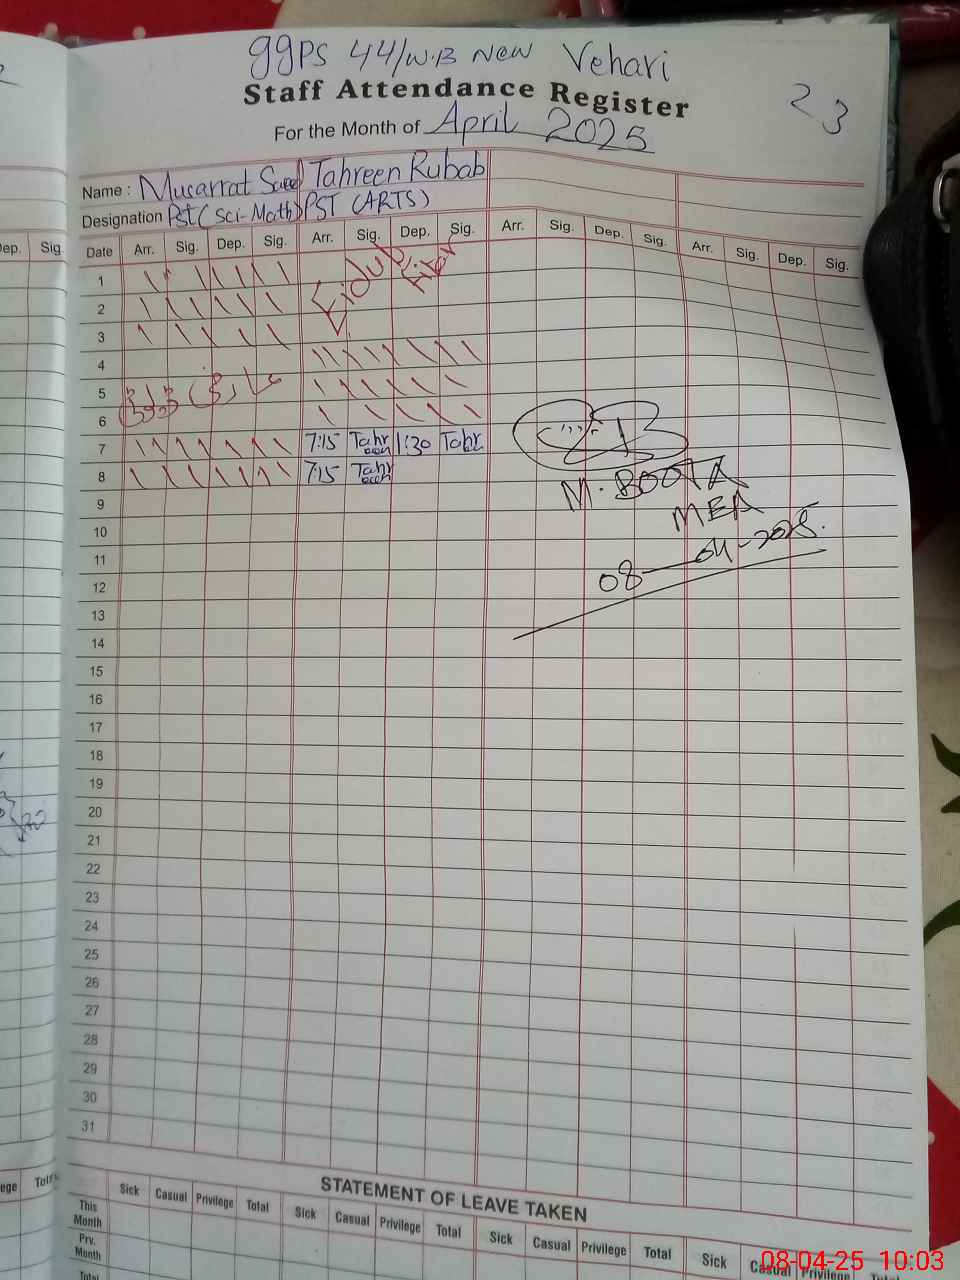 ggPS 44/W.B New Vehari
Staff Attendance Register
23
For the Month of April 2025
Name : Musarrat Saeed Tahreen Rubab
Designation Pst (Sci-Math) PST (ARTS)
ep. Sig.
Date Arr. Sig. Dep. Sig. Arr. Sig. Dep. Sig. Arr. Sig. Dep. Sig. Arr. Sig. Dep. Sig.
Eidul Fitar
1
2
3
4
5
6
7 7:15 Tahreen 1:30 Tahr
8 7:15 Tahreen
M. BOOTA
MEA
08-04-2025.
9
10
11
12
13
14
15
16
17
18
19
20
21
22
23
24
25
26
27
28
29
30
31
ege Total
STATEMENT OF LEAVE TAKEN
Sick Casual Privilege Total Sick Casual Privilege Total Sick Casual Privilege Total Sick Casual Privilege Total
This Month
Prv. Month
Total
08-04-25 10:03